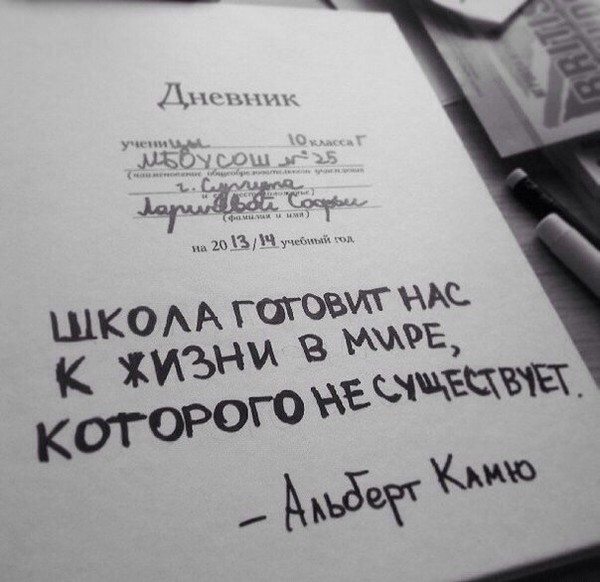 Дневник
ученицы 10 класса Г
МБОУСОШ №25
(наименование общеобразовательного учреждения
г. Сургута
Ларичевой Софьи
(фамилия и имя)
на 20 13/14 учебный год
ШКОЛА ГОТОВИТ НАС
К ЖИЗНИ В МИРЕ,
КОТОРОГО НЕ СУЩЕСТВУЕТ.
– Альберт Камю
BRITIS